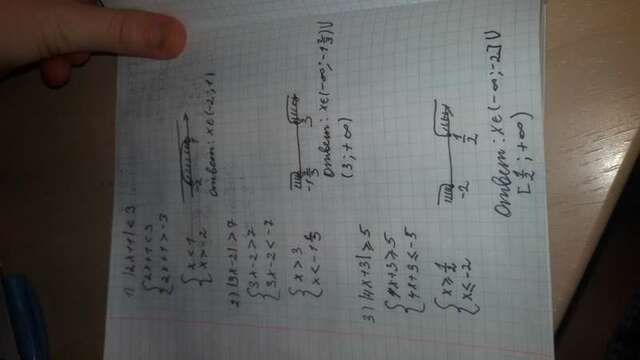 1) |2x+1| < 3
{2x+1<3
{2x+1>-3
{x<1
{x>-2
-2 1
Ответ: x∈(-2; 1)
2) |3x-2|>7
{3x-2>7
{3x-2<-7
{x>3
{x<-1 2/3
-1 2/3 3
Ответ: x∈(-∞; -1 2/3)U
(3; +∞)
3) |4x+3|≥5
{4x+3≥5
{4x+3≤-5
{x≥1/2
{x≤-2
-2 1/2
Ответ: x∈(-∞; -2]U
[1/2; +∞)